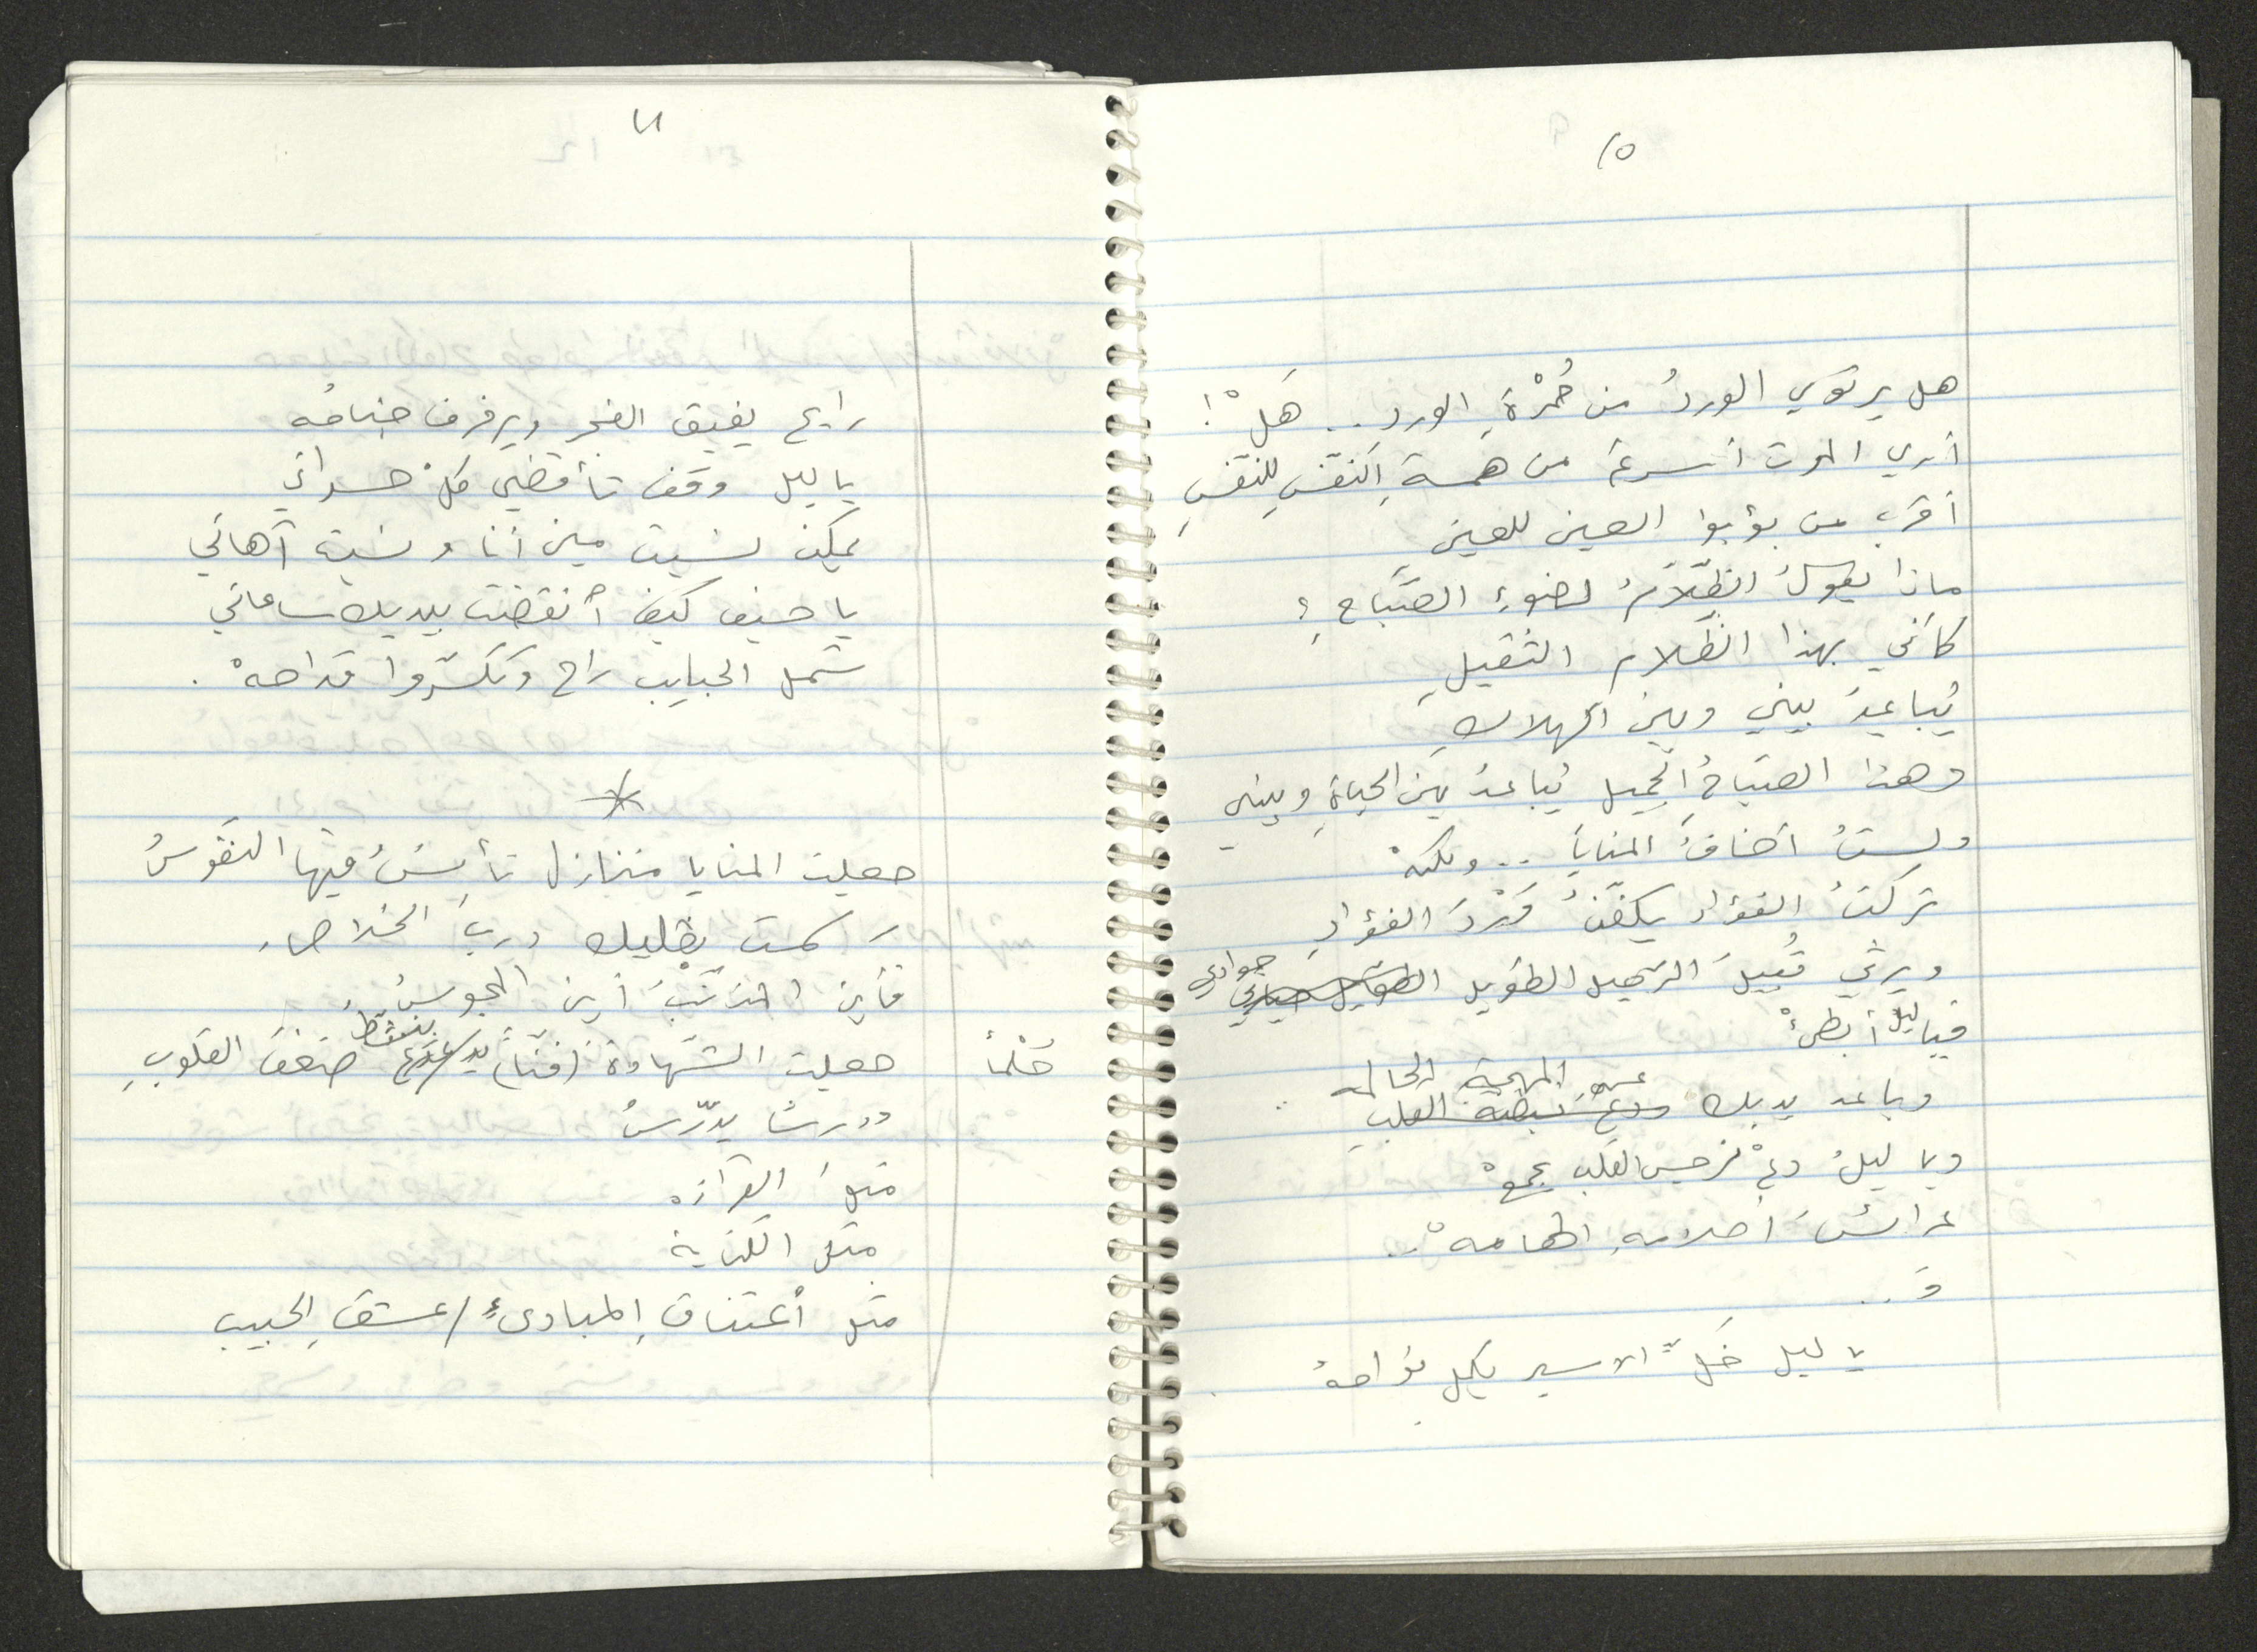 ١٥
هل يرتوي الوردُ من حُمْرَةِ الورد.. هَلْ!
أرى الموت أسرعَ من همسةِ النفْسِ للنفْسِ
أقرب من بؤبؤ العين للعينِ
ماذا يقولُ الظَّلَامُ لضوءِ الصَّبَاحِ؟
كأني بهذا الظَّلام الثقيلِ
يُباعِدُ بيني وبين الهلاكِ
وهذا الصَّباحُ الجميل يُباعدُ بين الحياةِ وبيني
ولستُ أخافُ المنايا .. ولكنْ
تركتُ الفؤاد يكفّنُ فَرْدَ الفؤادِ
ويرثي قُبيلَ الرّحيل الطويل الطويل جوادي
فيا ليلُ أبطئْ
وباعد يديك ودعْ نبضة القلب عن المهجة الحالمه ..
ويا ليلُ دعْ نرجس القلب يجمعْ
عرائسَ أحلامهِ الهائمهْ..
وَ..
يا ليل خَلّ الاسير يكمل نواحهْ
١٦
رايح يفيق الفجر ويرفرف جناحُه
يا ليل وقف تأقضي كلْ حسراتي
يمكن نسيت مين أنا ونسيت آهاتي
يا حيف كيف أنقضت بيديك ساعاتي
شمل الحبايب راح وتكسّروا قداحهْ .
*
جعلت المنايا منازل تأنسُ فيها النفوسُ
رسمت بظليك دربَ الخلاص
فأين المذنّبُ أين المجوسُ
حُلْماً جعلت الشهادة (فنّاً) ينشّط ضعفَ القلوبِ
ودرساً يدرّسُ
مثلَ القرآن
مثل الكتابة
مثل أعتناقِ المبادىءِ / عشقِ الحبيب